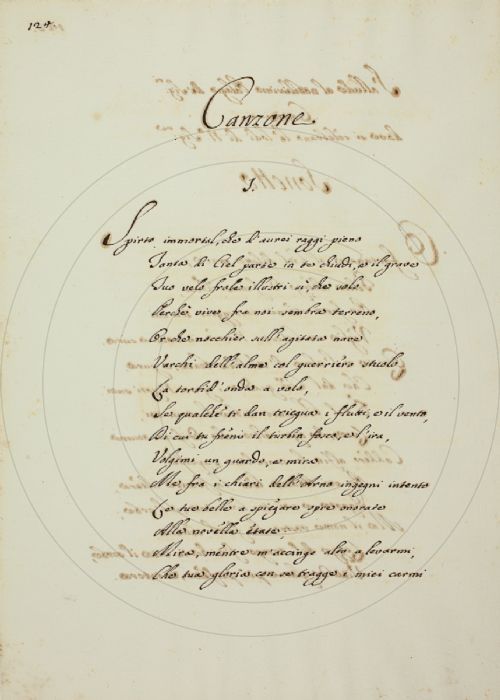 124
Canzone
I.
Spirto immortal, che d'aurei raggi pieno
Tanta di Ciel parte in te chiudi, e il grave
Tuo velo frale illustri sì, che solo
Perchè vive fra noi sembra terreno,
Or che nocchier sull'agitata nave
Varchi dell'alme col guerriero stuolo
La torbid'onda a volo,
Se qualche ti dan triegua i flutti, e il vento,
Di cui tu freni il turbin fosco, e l'ira,
Volgimi un guardo, e mira
Me fra i chiari dell'Arno ingegni intento
Le tue belle a spiegare opre onorate
Alla novella etate,
Mira, mentre m'accingo alto a levarmi,
Che tua gloria con se tragge i miei carmi